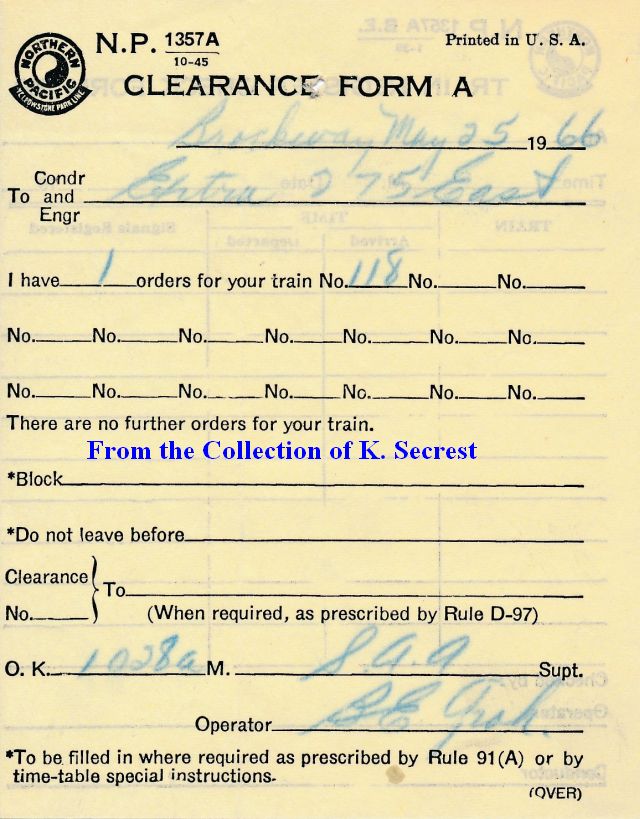 NORTHERN PACIFIC
YELLOWSTONE PARK LINE
N.P. 1357A
10-45
Printed in U. S. A.
CLEARANCE FORM A
Brockway May 25 1966
Condr
To and Extra 275 East
Engr
I have 1 orders for your train No. 118 No. No.
No. No. No. No. No. No. No.
No. No. No. No. No. No. No.
There are no further orders for your train.
From the Collection of K. Secrest
*Block
*Do not leave before
Clearance
To
No. (When required, as prescribed by Rule D-97)
O. K. 1028a M. S.A.A Supt.
Operator BE Groh
*To be filled in where required as prescribed by Rule 91(A) or by
time-table special instructions.
(OVER)